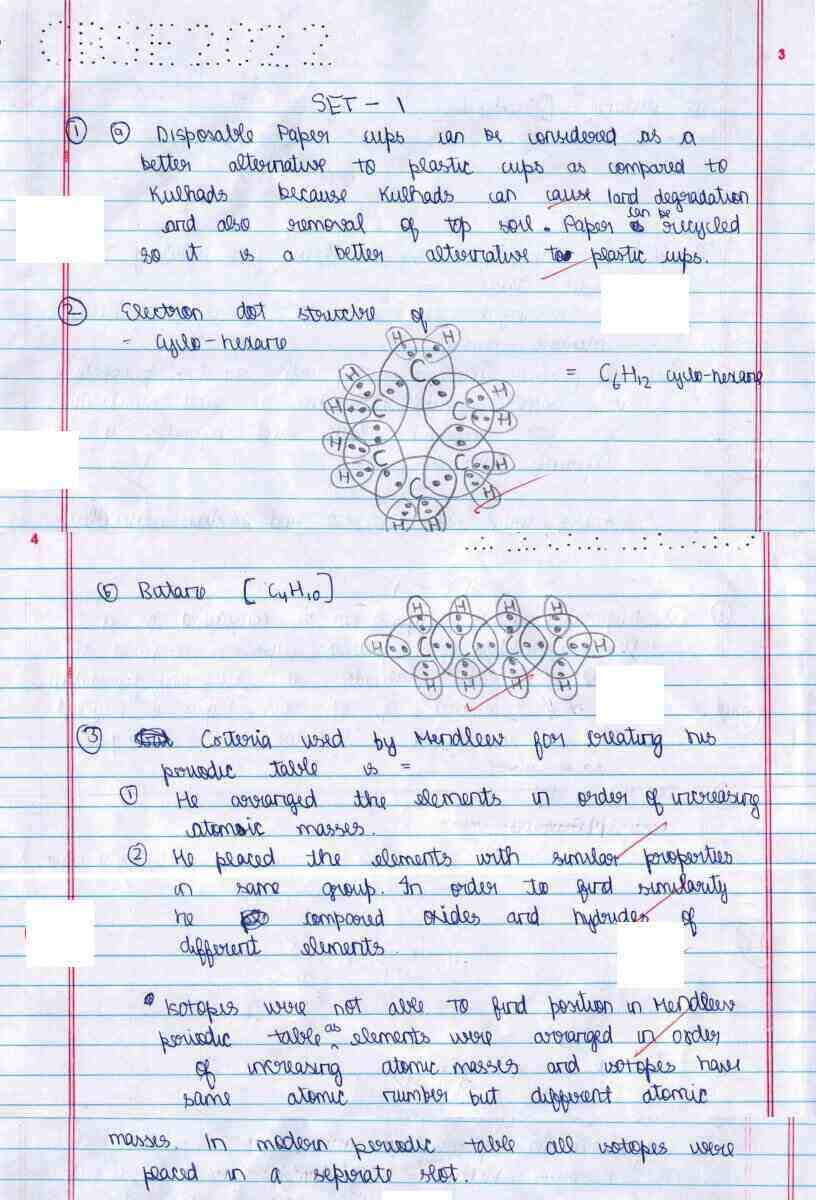 CBSE 2022
3
SET - 1
① ⓐ Disposable Paper cups can be considered as a
better alternative to plastic cups as compared to
Kulhads because Kulhads can cause land degradation
and also removal of top soil. Paper can be recycled
so it is a better alternative to plastic cups.
② Electron dot structure of
- cyclo-hexane
= C6H12 cyclo-hexane
H H
C
H H
H C C H
H C C H
H H
C
H H
4
ⓑ Butane [C4H10]
H H H H
H C C C C H
H H H H
③ Criteria used by Mendleev for creating his
periodic table is =
① He arranged the elements in order of increasing
atomic masses.
② He placed the elements with similar properties
in same group. In order to find similarity
he compared oxides and hydrides of
different elements.
• Isotopes were not able to find position in Mendleev
periodic table as elements were arranged in order
of increasing atomic masses and isotopes have
same atomic number but different atomic
masses. In modern periodic table all isotopes were
placed in a seperate slot.